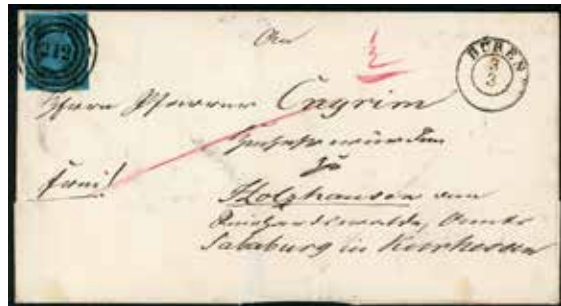 212
An
BÜREN
3
3
Herrn Pfarrer Cnyrim
zu
frei
Holzhausen am
Reinhardswalde, Amts
Sababurg in Kurhessen